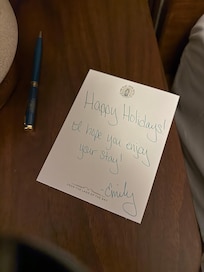 Happy Holidays!
I hope you enjoy
your stay!
Emily